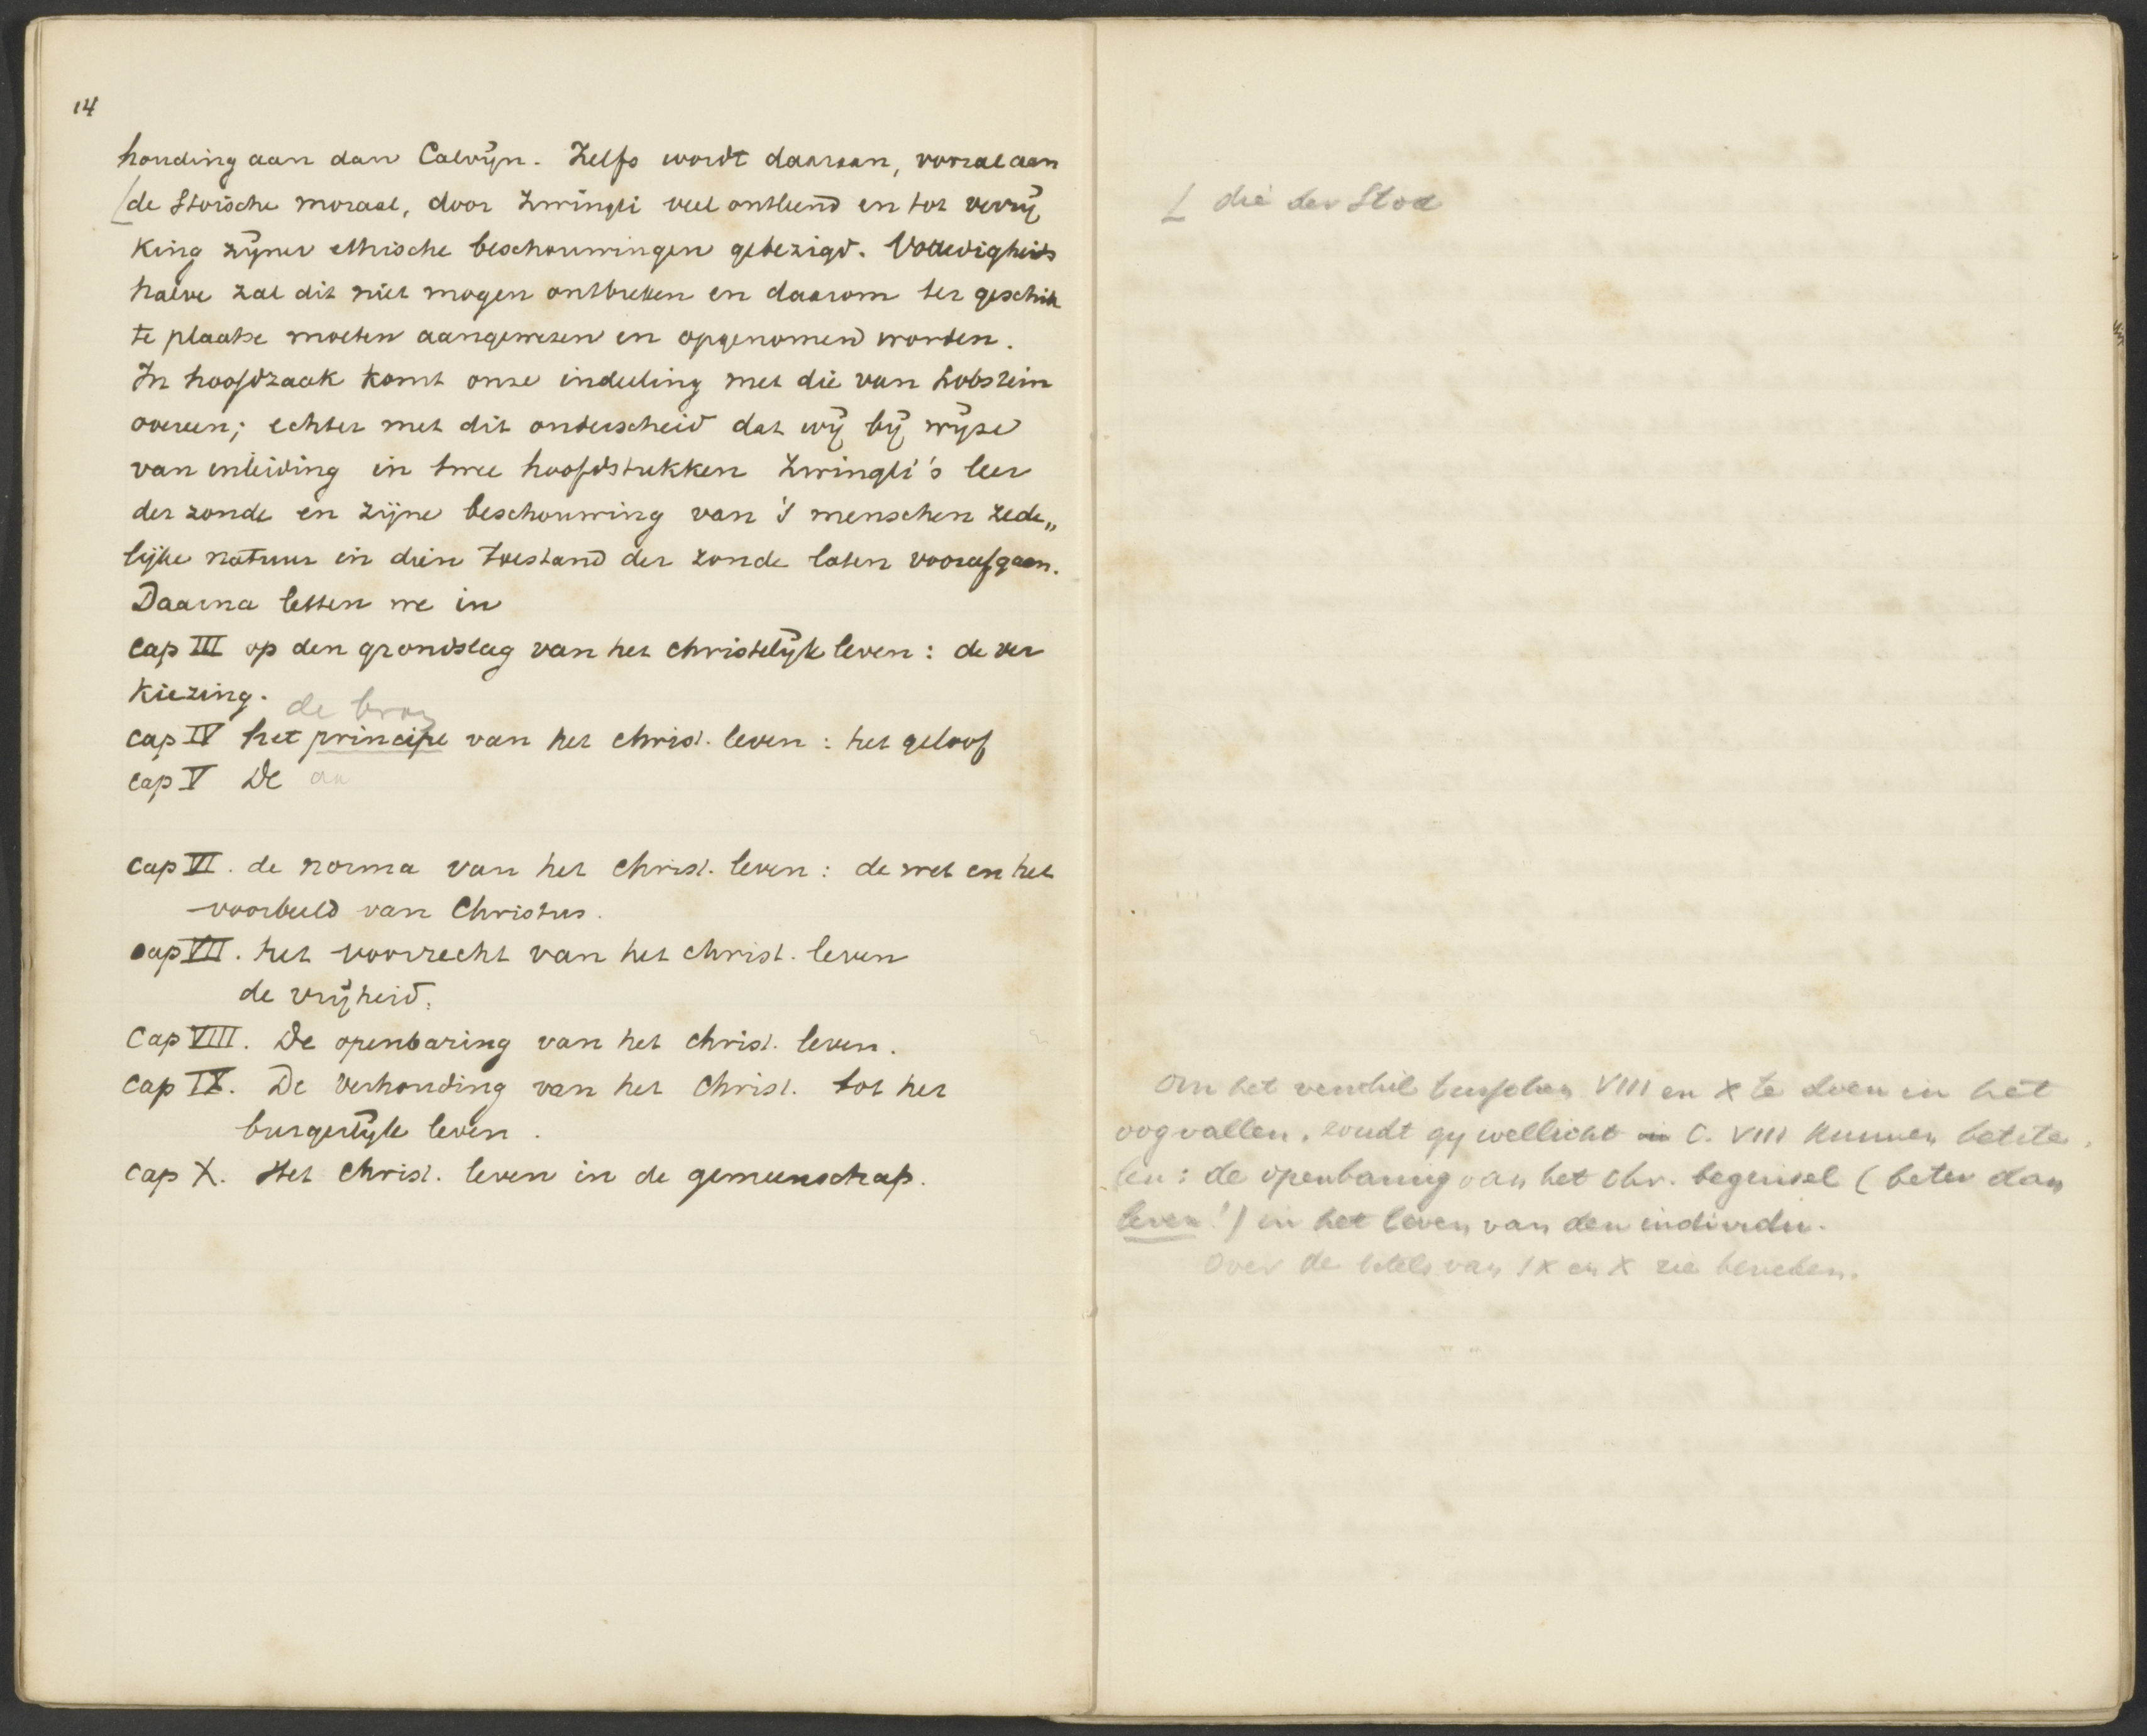 14
houding aan dan Calvijn. Zelfs wordt daaraan, vooral aan
de Stoïsche moraal, door Zwingli veel ontleend en tot verrij
king zijner ethische beschouwingen gebezigd. Volledigheids
halve zal dit niet mogen ontbreken en daarom ter geschik
te plaatse moeten aangewezen en opgenomen worden.
In hoofdzaak komt onze indeeling met die van Lobstein
overeen; echter met dit onderscheid dat wij bij wijze
van inleiding in twee hoofdstukken Zwingli's leer
der zonde en zijne beschouwing van 's menschen zede„
lijke natuur in dien toestand der zonde laten voorafgaan.
Daarna letten we in
Cap III op den grondslag van het christelijk leven: de ver
kiezing.
de bron
Cap IV het principe van het christ. leven: het geloof
Cap V De aa
Cap VI. de norma van het christ. leven: de wet en het
voorbeeld van Christus.
Cap VII. het voorrecht van het christ. leven
de vrijheid.
Cap VIII. De openbaring van het christ. leven.
Cap IX. De verhouding van het Christ. tot het
burgerlijk leven.
Cap X. Het christ. leven in de gemeenschap.
die der Stoa
Om het verschil tusschen VIII en X te doen in het
oog vallen, zoudt gij wellicht in C. VIII kunnen betite
len: de openbaring van het chr. beginsel (beter dan
leven!) in het leven van den individu.
Over de titels van IX en X zie beneden.